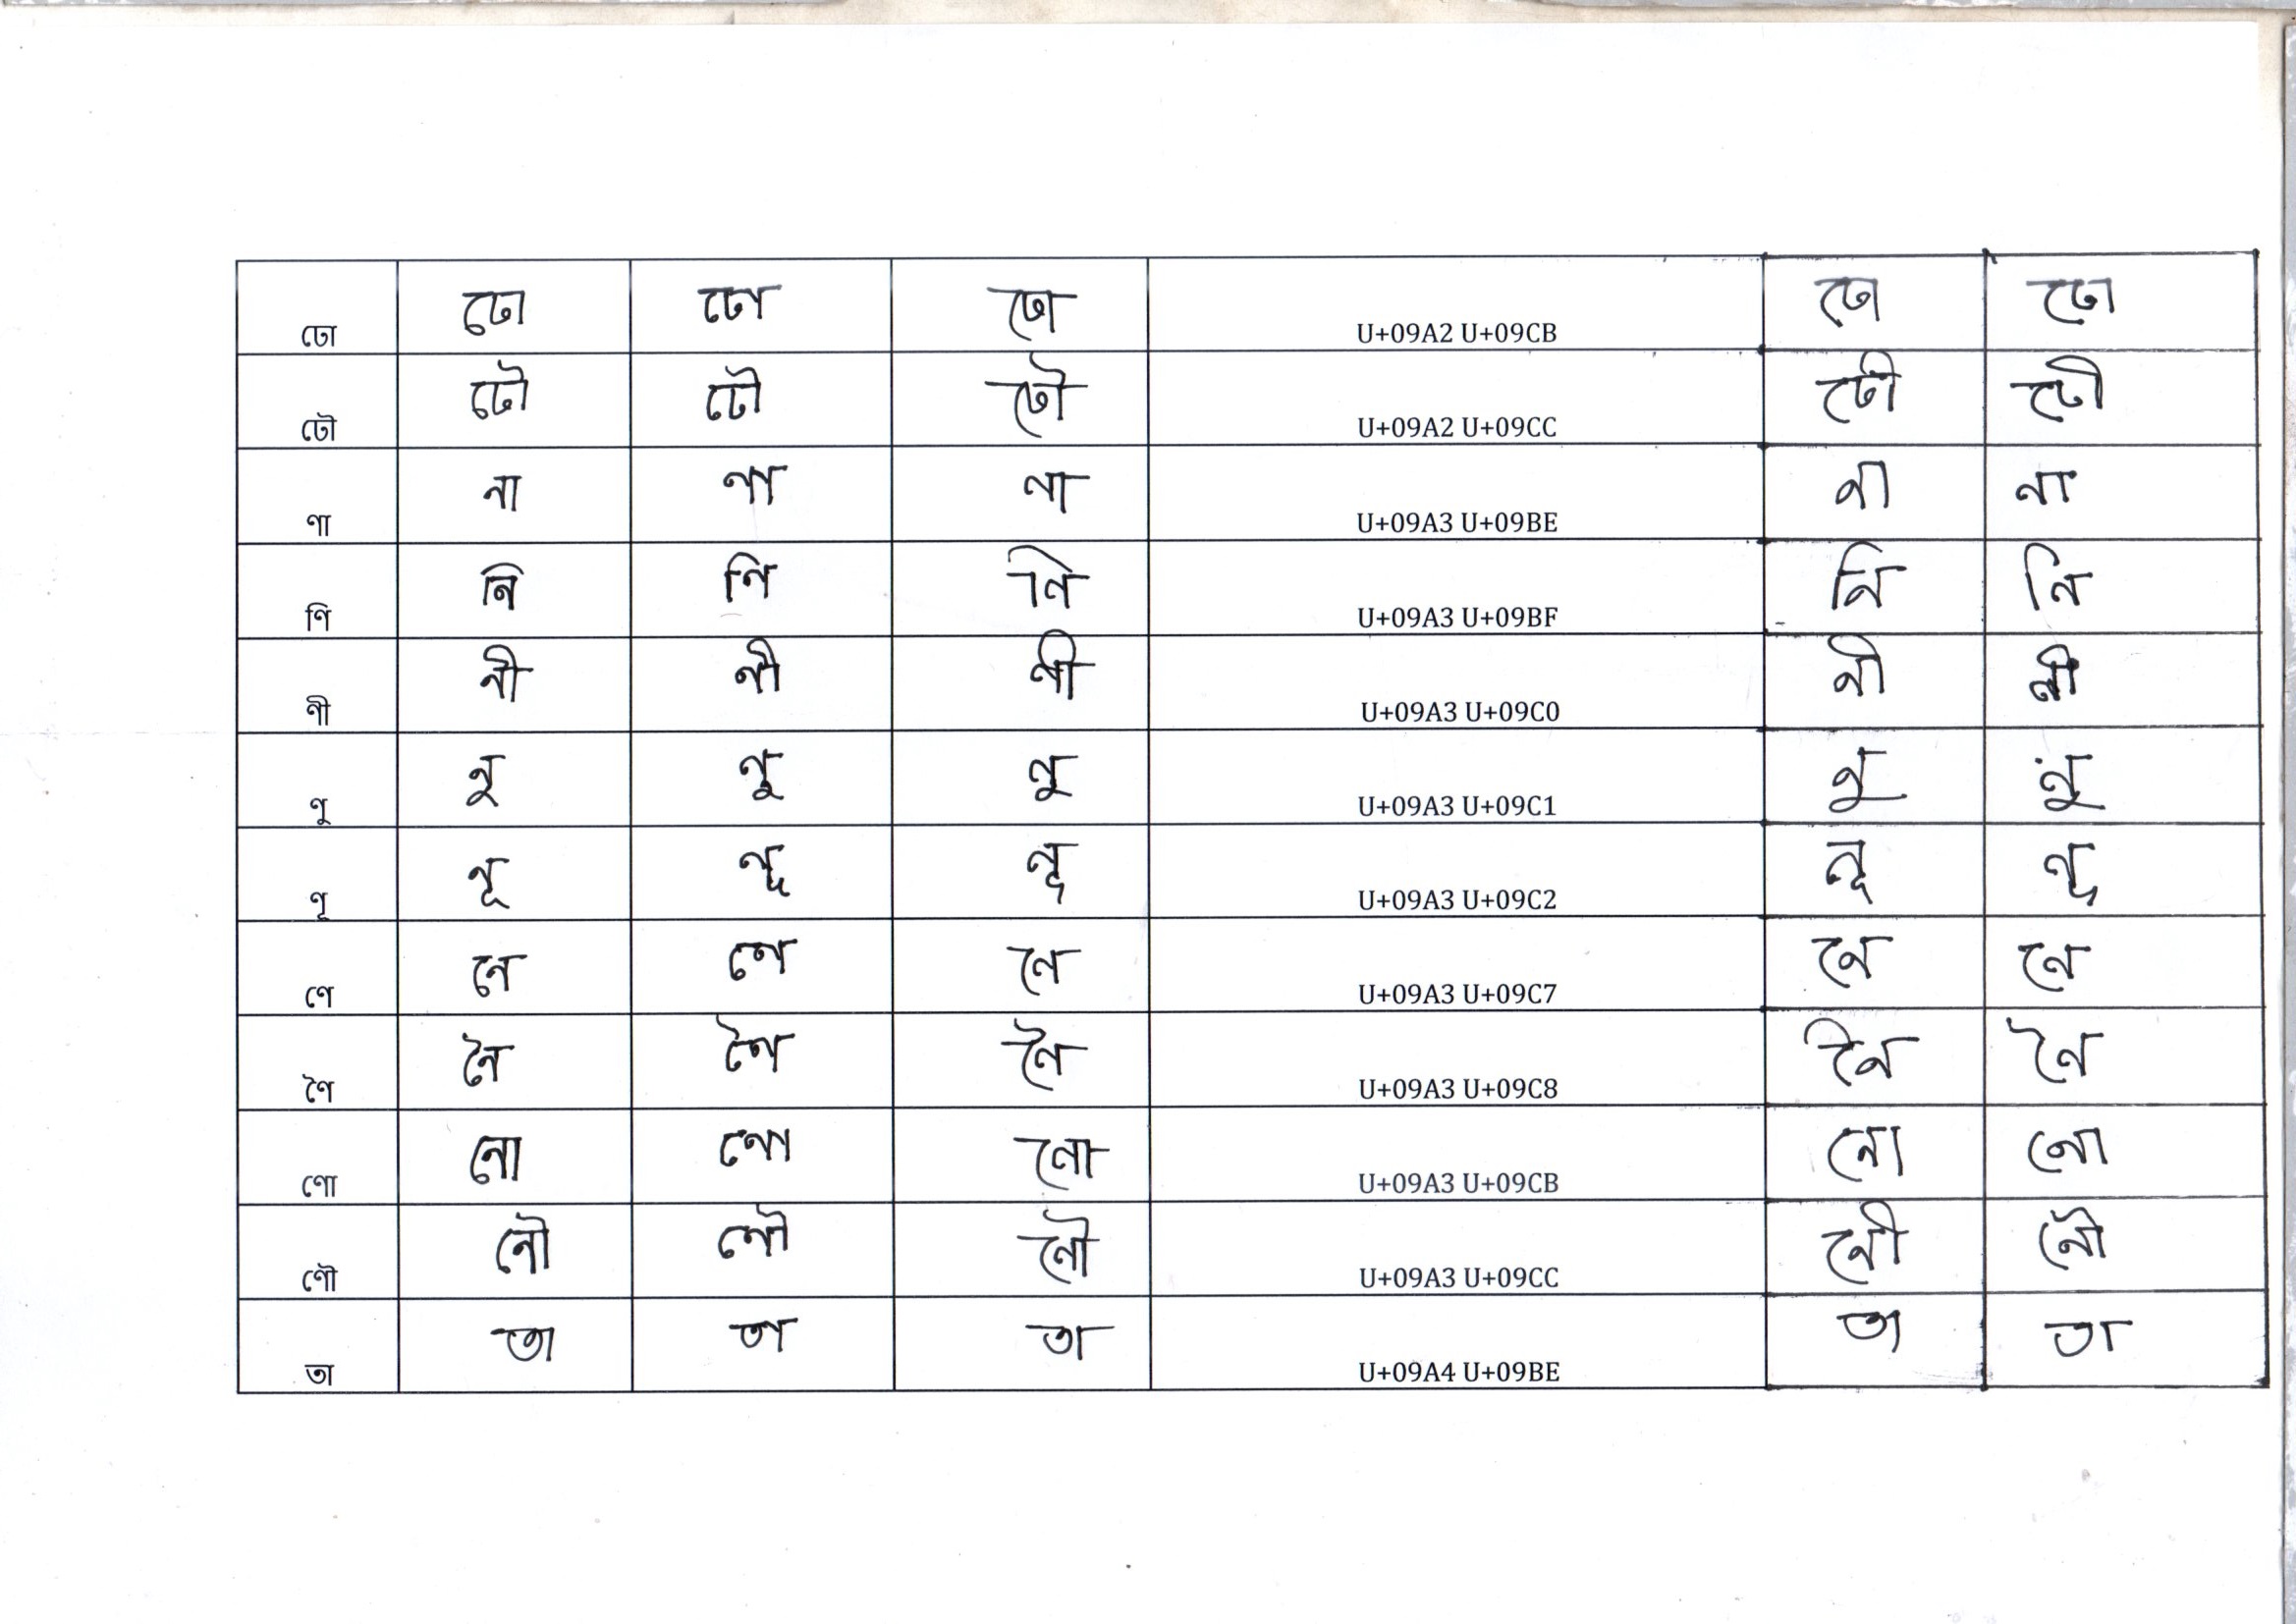 ঢো ঢো ঢো ঢো U+09A2 U+09CB ঢো ঢো
ঢৌ ঢৌ ঢৌ ঢৌ U+09A2 U+09CC ঢৌ ঢৌ
ণা ণা ণা ণা U+09A3 U+09BE ণা ণা
ণি ণি ণি ণি U+09A3 U+09BF ণি ণি
ণী ণী ণী ণী U+09A3 U+09C0 ণী ণী
ণু ণু ণু ণু U+09A3 U+09C1 ণু ণু
ণূ ণূ ণূ ণূ U+09A3 U+09C2 ণূ ণূ
ণে ণে ণে ণে U+09A3 U+09C7 ণে ণে
ণৈ ণৈ ণৈ ণৈ U+09A3 U+09C8 ণৈ ণৈ
ণো ণো ণো ণো U+09A3 U+09CB ণো ণো
ণৌ ণৌ ণৌ ণৌ U+09A3 U+09CC ণৌ ণৌ
তা তা তা তা U+09A4 U+09BE তা তা